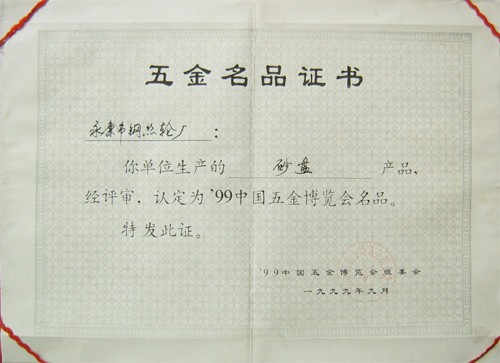 五金名品证书
永康市钢丝轮厂：
你单位生产的 砂盘 产品，
经评审，认定为'99中国五金博览会名品。
特发此证。
'99中国五金博览会组委会
一九九九年九月